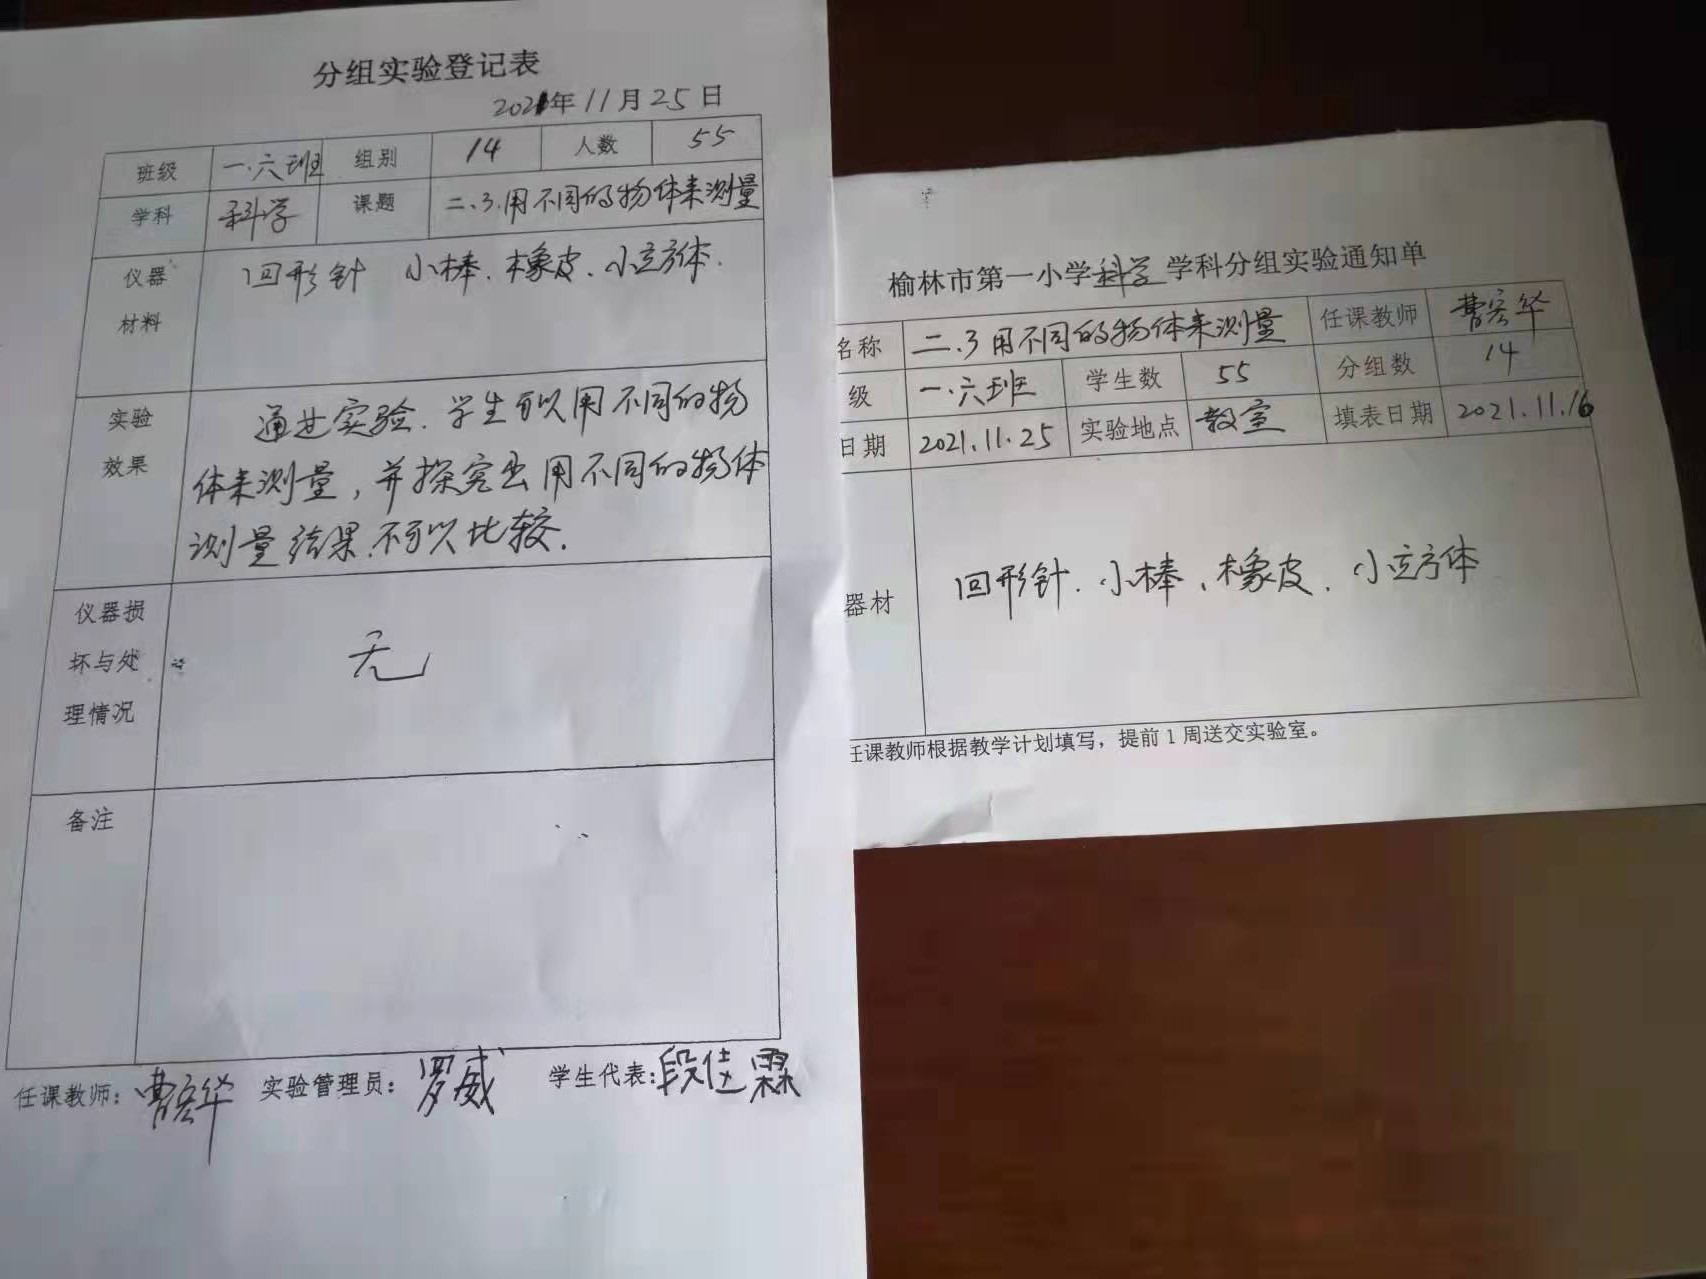 分组实验登记表
2021年11月25日
班级 一.六班 组别 14 人数 55
学科 科学 课题 二、3.用不同的物体来测量
仪器 回形针 小棒、橡皮、小立方体.
材料
实验 通过实验.学生可以用不同的物
效果 体来测量，并探究出用不同的物体
测量结果.不可以比较.
仪器损
坏与处 无
理情况
备注
任课教师：曹宏华 实验管理员：罗威 学生代表：段佳霖
榆林市第一小学科学学科分组实验通知单
名称 二、3用不同的物体来测量 任课教师 曹宏华
级 一.六班 学生数 55 分组数 14
日期 2021.11.25 实验地点 教室 填表日期 2021.11.16
器材 回形针、小棒、橡皮、小立方体
任课教师根据教学计划填写，提前1周送交实验室。